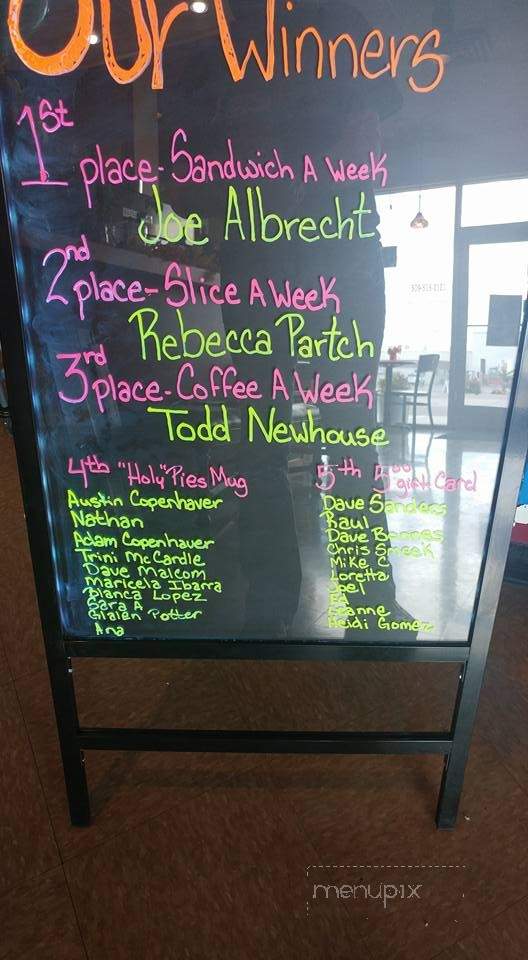 Our Winners
1st place-Sandwich A Week
Joe Albrecht
2nd place-Slice A Week
Rebecca Partch
3rd place-Coffee A Week
Todd Newhouse
4th "Holy" Pies Mug
Austin Copenhaver
Nathan
Adam Copenhaver
Trini McCardle
Dave Malcom
Maricela Ibarra
Blanca Lopez
Sara A
Glalen Potter
Ana
5th 5.00 gift Card
Dave Sanders
Raul
Dave
Chris Smeek
Mike C
Loretta
Joel
Ed
Heidi Gomez
menupix